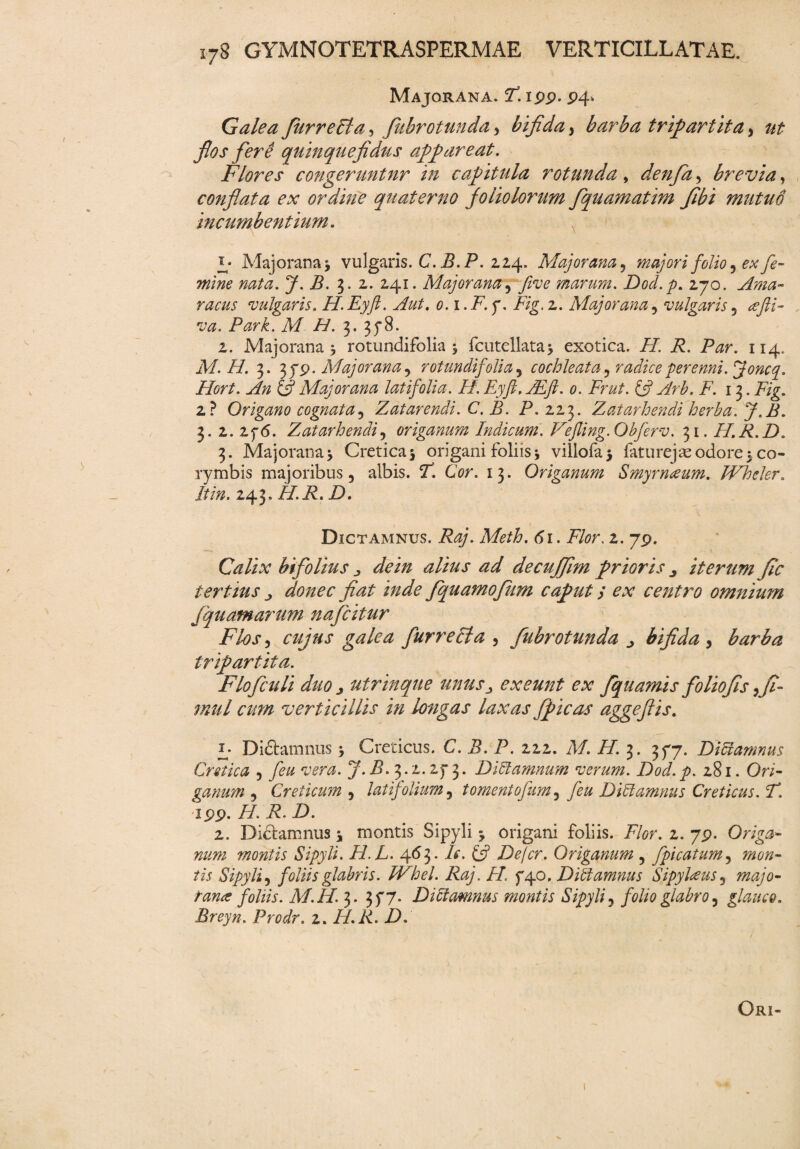 178 GYMNOTETRASPERMAE VERTICILLATAE.
Majorana. T. 199. 94.
Galea ſurrecta, ſubrotunda, bifida, barba tripartita, ut
flos ferè quinquefidus appareat.
Flores congeruntur in capitula rotunda, denſa, brevia,
conflata ex ordine quaterno foliolorum ſquamatim ſibi mutuò
incumbentium.
1. Majorana; vulgaris. C.B.P. 224. Majorana, majori folio, ex ſe-
mine nata. J. B. 3. 2. 241. Majorana, ſive marum. Dod. p. 270. Ama-
racus vulgaris. H.Eyſt. Aut. o. 1. F. 5. Fig. 2. Majorana, vulgaris, æſti-
va. Park. M H. 3. 358.
2. Majorana; rotundifolia; ſcutellata; exotica. H. R. Par. 114.
M. H. 3. 359. Majorana, rotundifolia, cochleata, radice perenni. Joncq.
Hort. An & Majorana latifolia. H. Eyſt. Æſt. o. Frut. & Arb. F. 13. Fig.
2? Origano cognata, Zatarendi. C. B. P. 223. Zatarhendi herba. J.B.
3. 2. 256. Zatarhendi, origanum Indicum. Veſling. Obſerv. 31. H.R.D.
3. Majorana; Cretica; origani foliis; villoſa; ſaturejæ odore; co-
rymbis majoribus, albis. T. Cor. 13. Origanum Smyrnæum. Wheler.
Itin. 243. H.R.D.
Dictamnus. Raj. Meth. 61. Flor. 2. 79.
Calix bifolius, dein alius ad decuſſim prioris, iterum ſic
tertius, donec fiat inde ſquamoſum caput; ex centro omnium
ſquamarum naſcitur
Flos, cujus galea ſurrecta, ſubrotunda, bifida, barba
tripartita.
Floſculi duo, utrinque unus, exeunt ex ſquamis folioſis, ſi-
mul cum verticillis in longas laxas ſpicas aggeſtis.
1. Dictamnus; Creticus. C. B. P. 222. M. H. 3. 357. Dictamnus
Cretica, ſeu vera. J. B. 3. 2. 253. Dictamnum verum. Dod. p. 281. Ori-
ganum, Creticum, latifolium, tomentoſum, ſeu Dictamnus Creticus. T.
199. H. R. D.
2. Dictamnus; montis Sipyli; origani foliis. Flor. 2. 79. Origa-
num montis Sipyli. H.L. 463. Ic. & Deſcr. Origanum, ſpicatum, mon-
tis Sipyli, foliis glabris. Whel. Raj. H. 540. Dictamnus Sipylæus, majo-
ranæ foliis. M.H. 3. 357. Dictamnus montis Sipyli, folio glabro, glauco.
Breyn. Prodr. 2. H.R. D.
Ori-